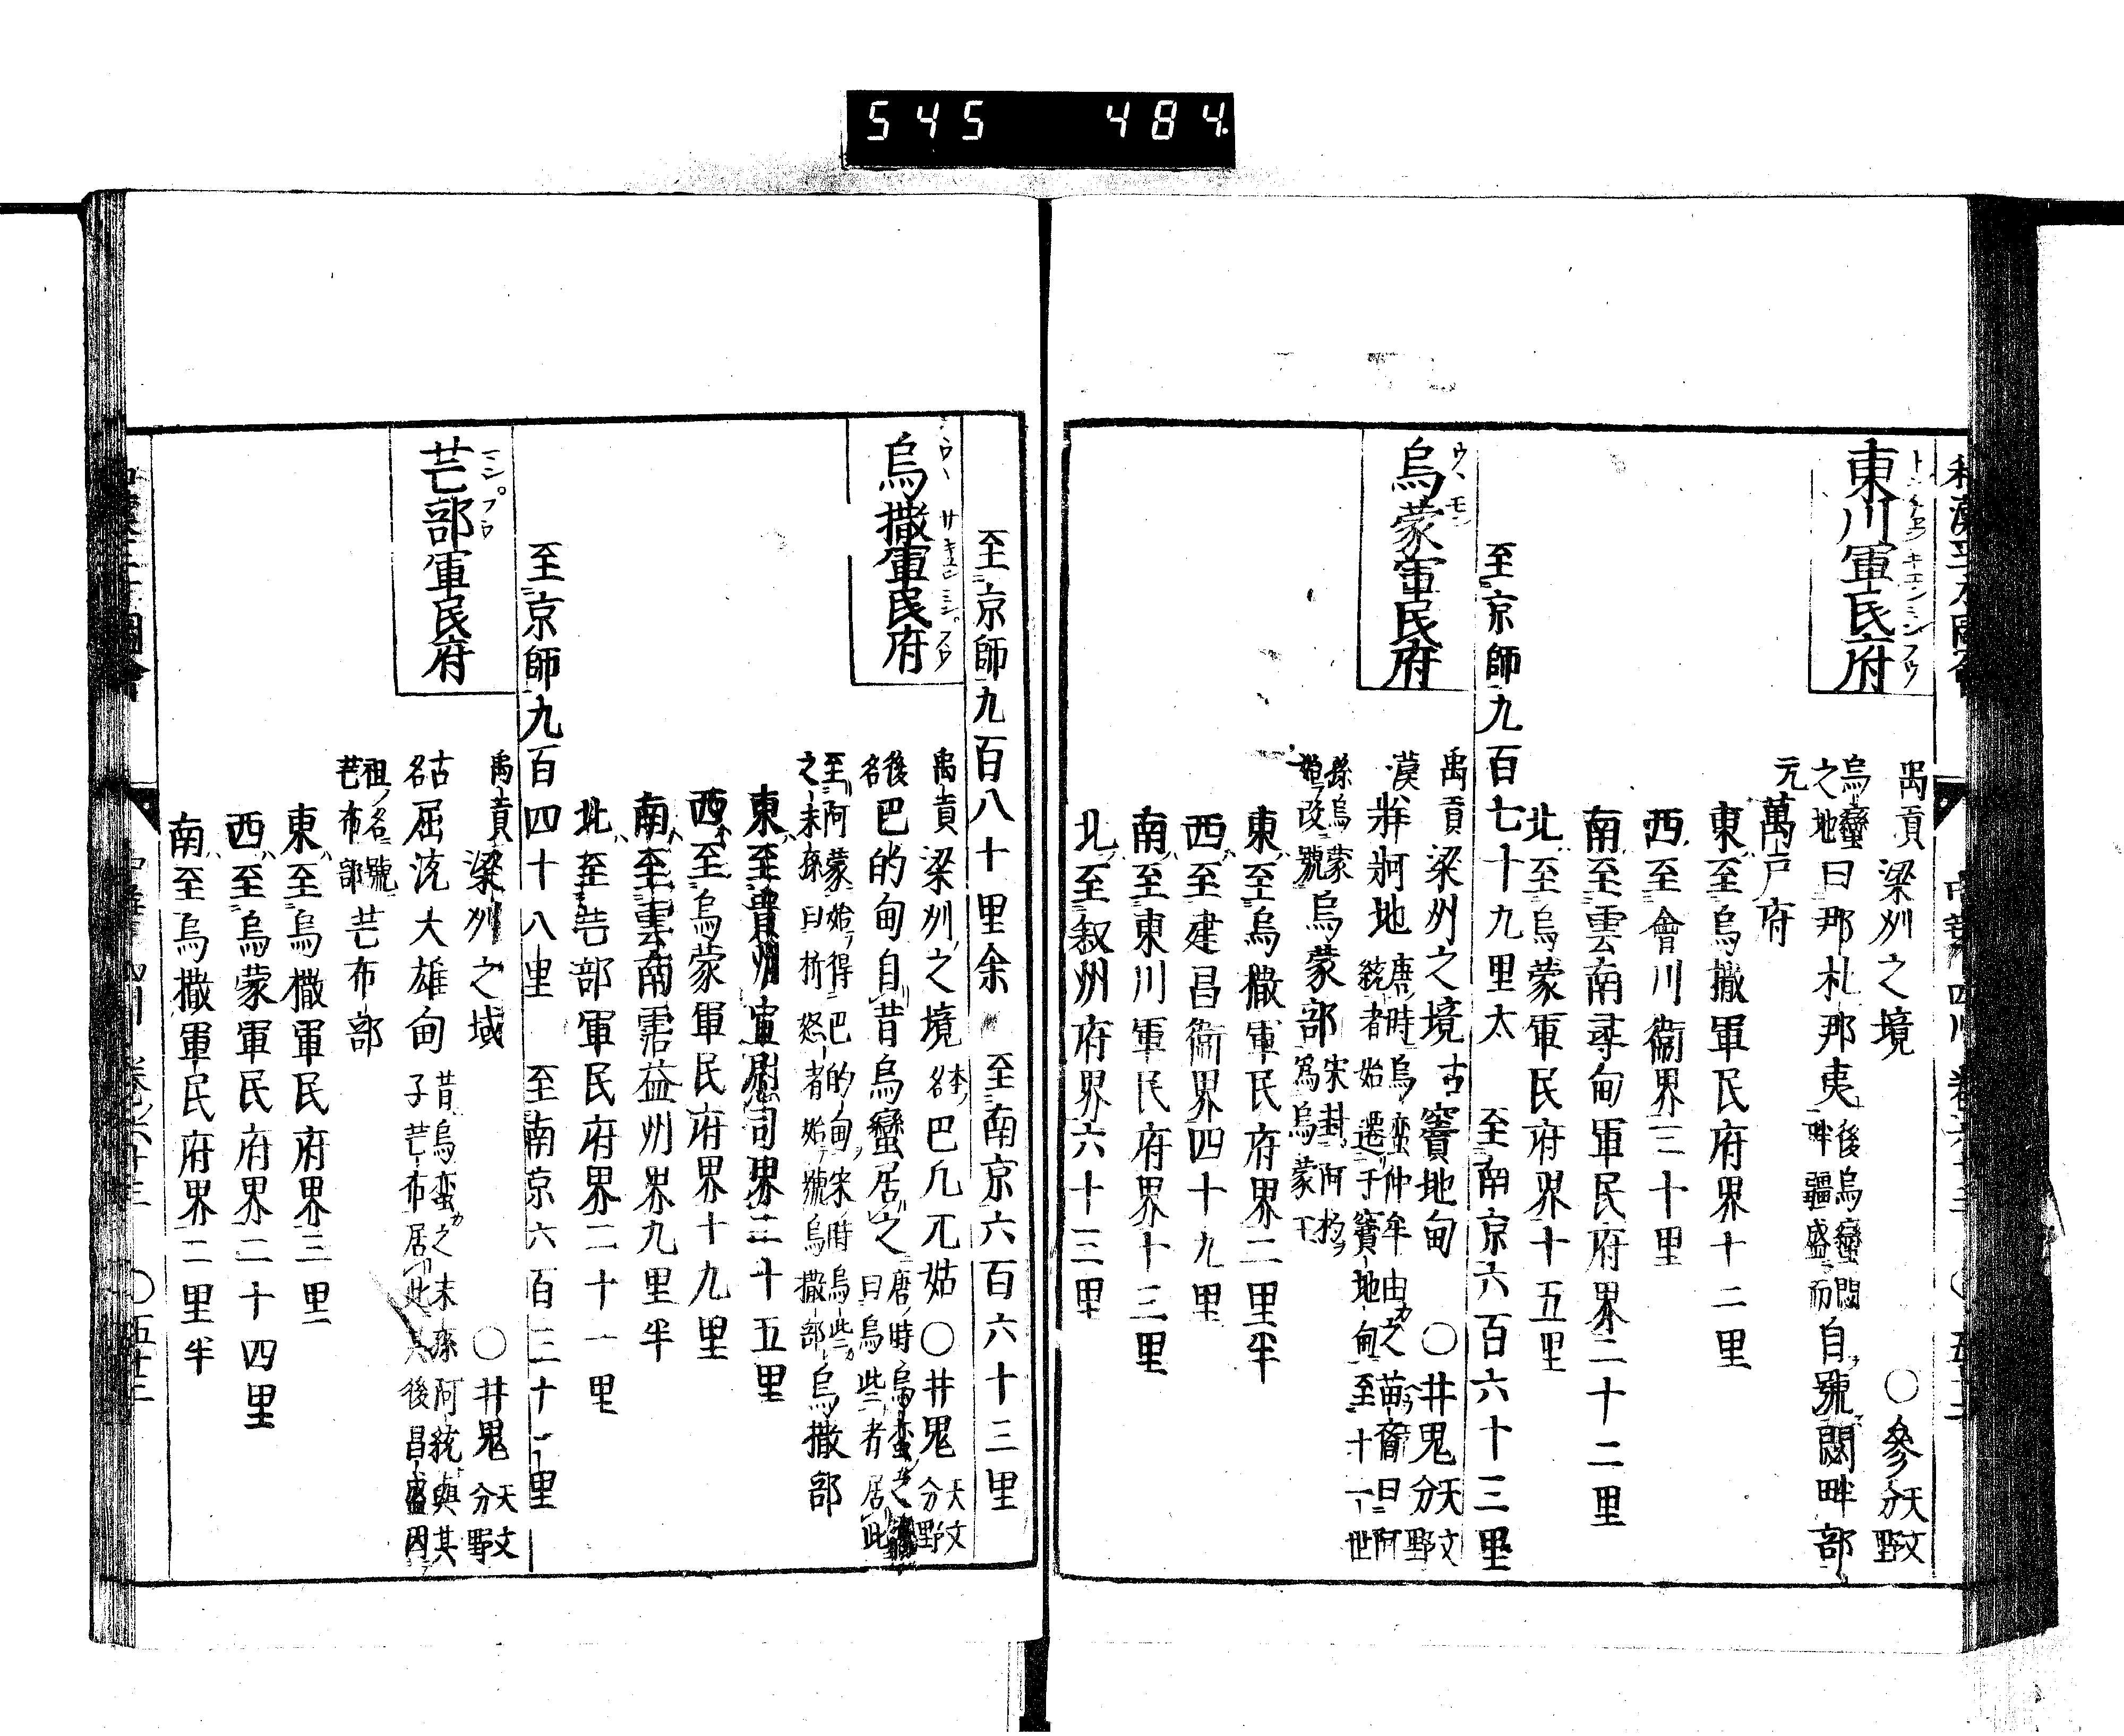 545 484
東川軍民府
禹貢梁州之境 ○參 天文分野
烏蠻之地 曰那札那夷 後烏蠻閟畔疆盛而 自號閟畔部
元 萬戸府
東至烏撒軍民府界十二里
西至會川衞界三十里
南至雲南尋甸軍民府界二十二里
北至烏蒙軍民府界十五里
至京師九百七十九里太 至南京六百六十三里
烏蒙軍民府
ウヽモン
禹貢梁州之境 古竇地甸 ○井鬼 天文分野
漢 牂牁地 唐時烏蛮仲牟由之苗裔曰阿統者始遷于竇地甸至十一世
孫烏蒙始改號 烏蒙部 宋封阿杓爲烏蒙王
東至烏撒軍民府界二里半
西至建昌衞界四十九里
南至東川軍民府界十三里
北至叙州府界六十三里
至京師九百八十里余 至南京六百六十三里
烏撒軍民府
禹貢梁州之境 本名 巴凡兀姑 ○井鬼 天文分野
後名 巴的甸自昔烏蠻居之 唐時烏蛮之 曰烏些者居此
至阿蒙始得巴的甸宋時烏些之末孫曰折怒者始號烏撒部 烏撒部
東至貴州宣慰司界二十五里
西至烏蒙軍民府界十九里
南至雲南霑益州界九里半
北至芒部軍民府界二十一里
至京師九百四十八里 至南京六百三十一里
芒部軍民府
禹貢梁州之域 ○井鬼 天文分野
古名 屈流大雄甸 昔烏蛮之末孫阿統與其子芒布居此其後昌盛因
祖名號芒布部 芒布部
東至烏撒軍民府界三里
西至烏蒙軍民府界二十四里
南至烏撒軍民府界二里半